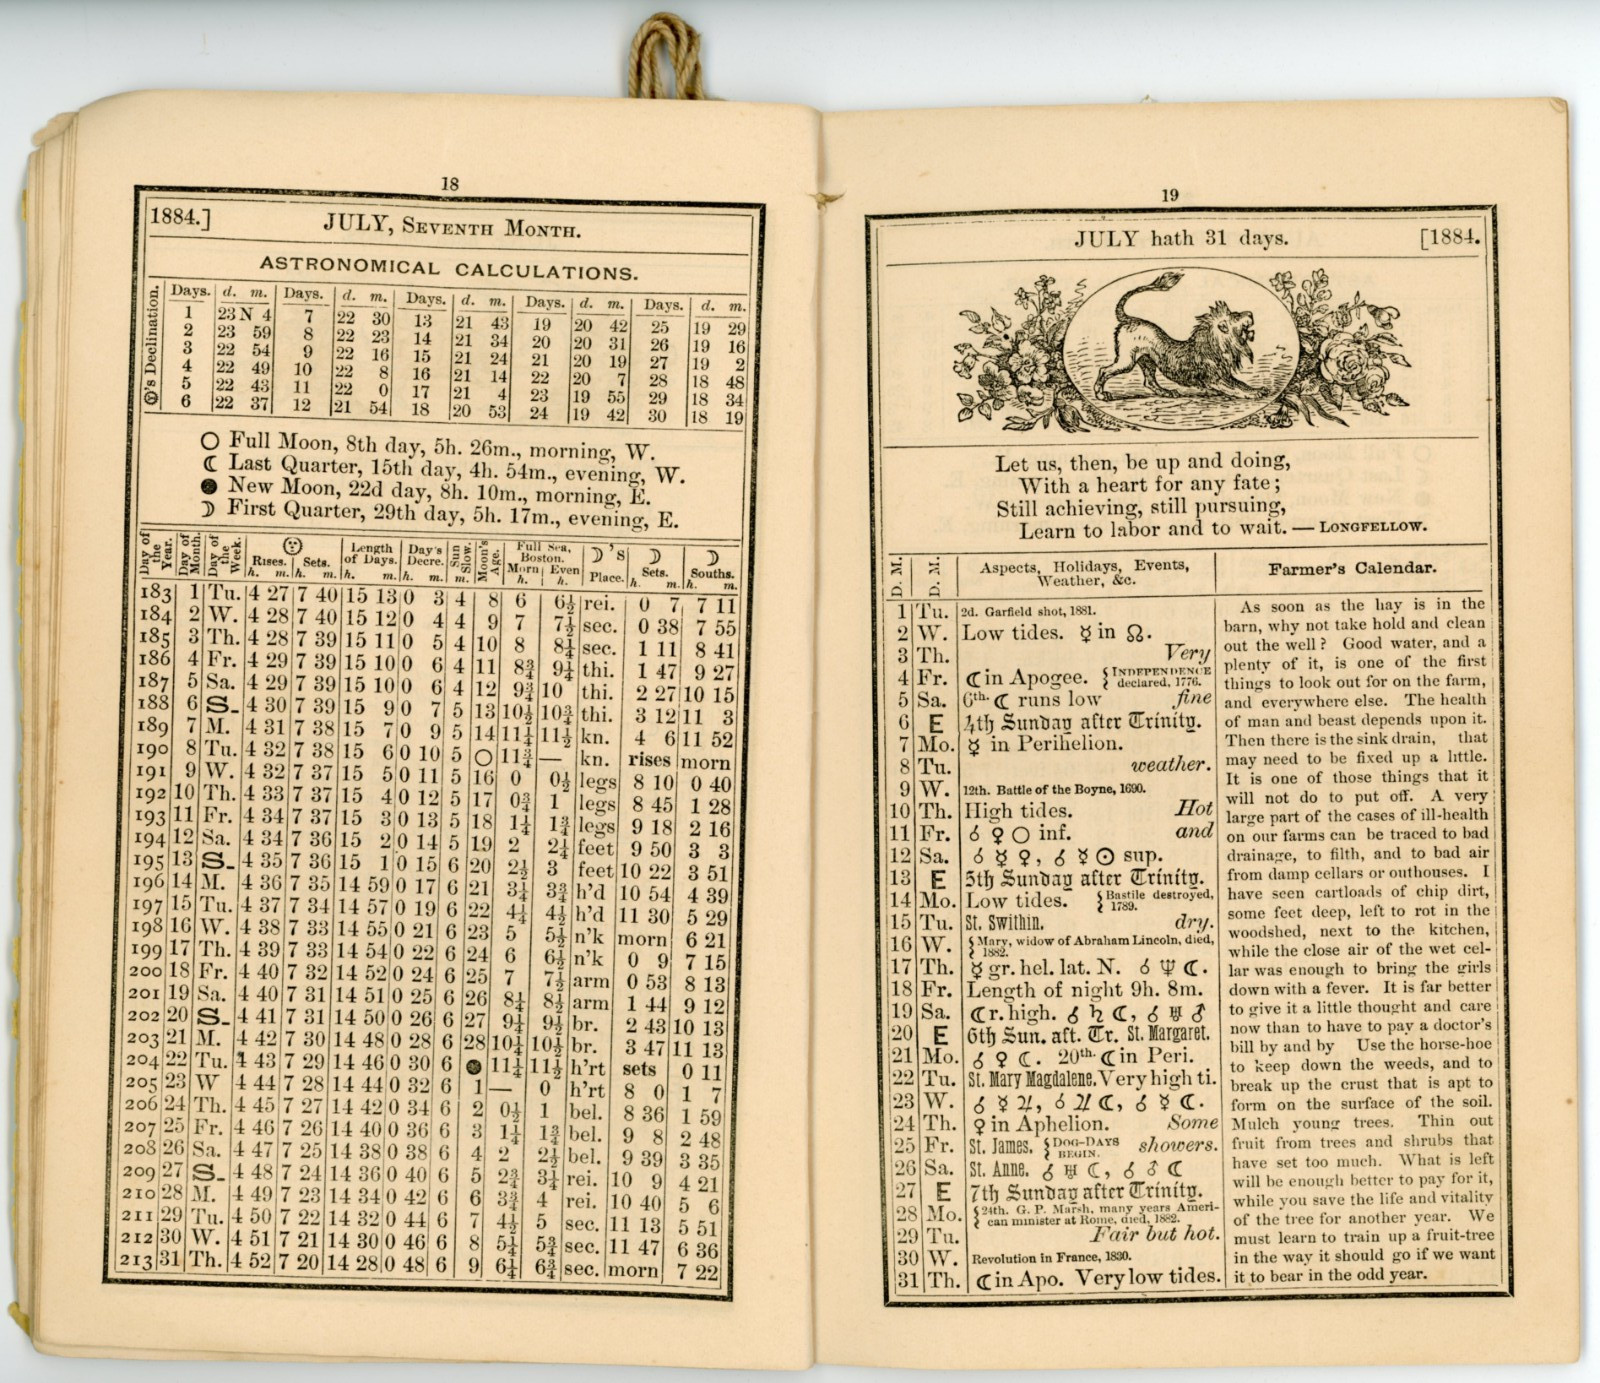 18
1884.] JULY, SEVENTH MONTH.
ASTRONOMICAL CALCULATIONS.
☉'s Declination.
Days. d. m. Days. d. m. Days. d. m. Days. d. m. Days. d. m.
1 23 N 4 7 22 30 13 21 43 19 20 42 25 19 29
2 23 59 8 22 23 14 21 34 20 20 31 26 19 16
3 22 54 9 22 16 15 21 24 21 20 19 27 19 2
4 22 49 10 22 8 16 21 14 22 20 7 28 18 48
5 22 43 11 22 0 17 21 4 23 19 55 29 18 34
6 22 37 12 21 54 18 20 53 24 19 42 30 18 19
○ Full Moon, 8th day, 5h. 26m., morning, W.
☾ Last Quarter, 15th day, 4h. 54m., evening, W.
● New Moon, 22d day, 8h. 10m., morning, E.
☽ First Quarter, 29th day, 5h. 17m., evening, E.
Day of the Year. Day of Month. Day of the Week. ☉ Rises. h. m. Sets. h. m. Length of Days. h. m. Day's Decre. h. m. Sun Slow. m. Moon's Age. Full Sea, Boston. Morn h. Even h. ☽'s Place. ☽ Sets. h. m. ☽ Souths. h. m.
183 1 Tu. 4 27 7 40 15 13 0 3 4 8 6 6½ rei. 0 7 7 11
184 2 W. 4 28 7 40 15 12 0 4 4 9 7 7½ sec. 0 38 7 55
185 3 Th. 4 28 7 39 15 11 0 5 4 10 8 8¼ sec. 1 11 8 41
186 4 Fr. 4 29 7 39 15 10 0 6 4 11 8¾ 9¼ thi. 1 47 9 27
187 5 Sa. 4 29 7 39 15 10 0 6 4 12 9¾ 10 thi. 2 27 10 15
188 6 S. 4 30 7 39 15 9 0 7 5 13 10½ 10¾ thi. 3 12 11 3
189 7 M. 4 31 7 38 15 7 0 9 5 14 11¼ 11½ kn. 4 6 11 52
190 8 Tu. 4 32 7 38 15 6 0 10 5 ○ 11¾ — kn. rises morn
191 9 W. 4 32 7 37 15 5 0 11 5 16 0 0½ legs 8 10 0 40
192 10 Th. 4 33 7 37 15 4 0 12 5 17 0¾ 1 legs 8 45 1 28
193 11 Fr. 4 34 7 37 15 3 0 13 5 18 1¼ 1¾ legs 9 18 2 16
194 12 Sa. 4 34 7 36 15 2 0 14 5 19 2 2¼ feet 9 50 3 3
195 13 S. 4 35 7 36 15 1 0 15 6 20 2½ 3 feet 10 22 3 51
196 14 M. 4 36 7 35 14 59 0 17 6 21 3¼ 3¾ h'd 10 54 4 39
197 15 Tu. 4 37 7 34 14 57 0 19 6 22 4¼ 4½ h'd 11 30 5 29
198 16 W. 4 38 7 33 14 55 0 21 6 23 5 5½ n'k morn 6 21
199 17 Th. 4 39 7 33 14 54 0 22 6 24 6 6½ n'k 0 9 7 15
200 18 Fr. 4 40 7 32 14 52 0 24 6 25 7 7½ arm 0 53 8 13
201 19 Sa. 4 40 7 31 14 51 0 25 6 26 8¼ 8½ arm 1 44 9 12
202 20 S. 4 41 7 31 14 50 0 26 6 27 9¼ 9½ br. 2 43 10 13
203 21 M. 4 42 7 30 14 48 0 28 6 28 10¼ 10½ br. 3 47 11 13
204 22 Tu. 4 43 7 29 14 46 0 30 6 ● 11¼ 11½ h'rt sets 0 11
205 23 W 4 44 7 28 14 44 0 32 6 1 — 0 h'rt 8 0 1 7
206 24 Th. 4 45 7 27 14 42 0 34 6 2 0½ 1 bel. 8 36 1 59
207 25 Fr. 4 46 7 26 14 40 0 36 6 3 1¼ 1¾ bel. 9 8 2 48
208 26 Sa. 4 47 7 25 14 38 0 38 6 4 2 2½ bel. 9 39 3 35
209 27 S. 4 48 7 24 14 36 0 40 6 5 2¾ 3¼ rei. 10 9 4 21
210 28 M. 4 49 7 23 14 34 0 42 6 6 3¾ 4 rei. 10 40 5 6
211 29 Tu. 4 50 7 22 14 32 0 44 6 7 4½ 5 sec. 11 13 5 51
212 30 W. 4 51 7 21 14 30 0 46 6 8 5¼ 5¾ sec. 11 47 6 36
213 31 Th. 4 52 7 20 14 28 0 48 6 9 6¼ 6¾ sec. morn 7 22
19
JULY hath 31 days. [1884.
Let us, then, be up and doing,
With a heart for any fate;
Still achieving, still pursuing,
Learn to labor and to wait. — LONGFELLOW.
D. M. D. M. Aspects, Holidays, Events, Weather, &c.
1 Tu. 2d. Garfield shot, 1881.
2 W. Low tides. ☿ in ☊.
3 Th. Very
4 Fr. ☾ in Apogee. {INDEPENDENCE declared, 1776.
5 Sa. 6th. ☾ runs low fine
6 E 4th Sunday after Trinity.
7 Mo. ☿ in Perihelion.
8 Tu. weather.
9 W. 12th. Battle of the Boyne, 1690.
10 Th. High tides. Hot
11 Fr. ☌ ♀ ○ inf. and
12 Sa. ☌ ☿ ♀, ☌ ☿ ☉ sup.
13 E 5th Sunday after Trinity.
14 Mo. Low tides. {Bastile destroyed, 1789.
15 Tu. St. Swithin. dry.
16 W. {Mary, widow of Abraham Lincoln, died, 1882.
17 Th. ☿ gr. hel. lat. N. ☌ ♆ ☾.
18 Fr. Length of night 9h. 8m.
19 Sa. ☾ r. high. ☌ ♄ ☾, ☌ ♅ ♂
20 E 6th Sun. aft. Tr. St. Margaret.
21 Mo. ☌ ♀ ☾. 20th. ☾ in Peri.
22 Tu. St. Mary Magdalene. Very high ti.
23 W. ☌ ☿ ♃, ☌ ♃ ☾, ☌ ☿ ☾.
24 Th. ♀ in Aphelion. Some
25 Fr. St. James. {DOG-DAYS BEGIN. showers.
26 Sa. St. Anne. ☌ ♅ ☾, ☌ ♂ ☾
27 E 7th Sunday after Trinity.
28 Mo. {24th. G. P. Marsh, many years American minister at Rome, died, 1882.
29 Tu. Fair but hot.
30 W. Revolution in France, 1830.
31 Th. ☾ in Apo. Very low tides.
Farmer's Calendar.
As soon as the hay is in the
barn, why not take hold and clean
out the well? Good water, and a
plenty of it, is one of the first
things to look out for on the farm,
and everywhere else. The health
of man and beast depends upon it.
Then there is the sink drain, that
may need to be fixed up a little.
It is one of those things that it
will not do to put off. A very
large part of the cases of ill-health
on our farms can be traced to bad
drainage, to filth, and to bad air
from damp cellars or outhouses. I
have seen cartloads of chip dirt,
some feet deep, left to rot in the
woodshed, next to the kitchen,
while the close air of the wet cel-
lar was enough to bring the girls
down with a fever. It is far better
to give it a little thought and care
now than to have to pay a doctor's
bill by and by Use the horse-hoe
to keep down the weeds, and to
break up the crust that is apt to
form on the surface of the soil.
Mulch young trees. Thin out
fruit from trees and shrubs that
have set too much. What is left
will be enough better to pay for it,
while you save the life and vitality
of the tree for another year. We
must learn to train up a fruit-tree
in the way it should go if we want
it to bear in the odd year.